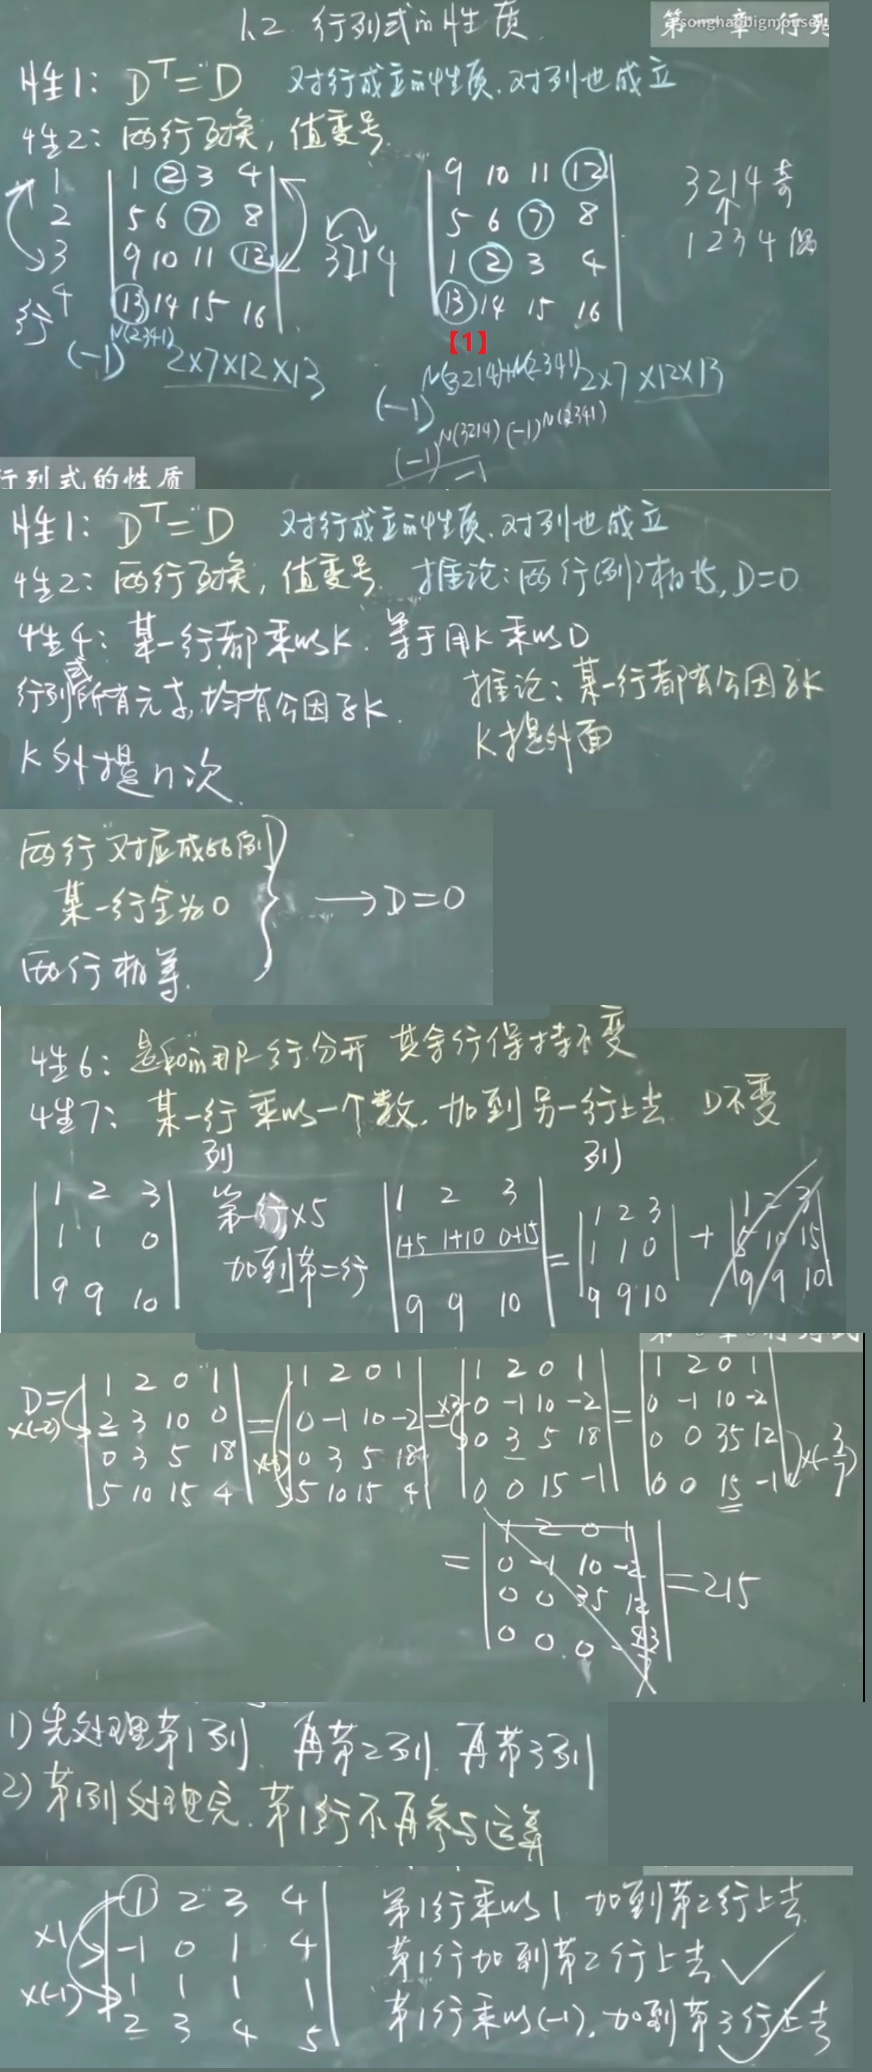 1.2 行列式的性质
第一章 行列
songhaobigmouse
性1: Dᵀ=D 对行成立的性质,对列也成立
性2: 两行互换,值变号
1
2
3
4
行
1 2 3 4
5 6 7 8
9 10 11 12
13 14 15 16
3214
9 10 11 12
5 6 7 8
1 2 3 4
13 14 15 16
3214 奇
1234 偶
【1】
(-1)^N(2341) 2×7×12×13
(-1)^N(3214)+N(2341) 2×7×12×13
(-1)^N(3214) (-1)^N(2341)
-1
行列式的性质
性1: Dᵀ=D 对行成立的性质,对列也成立
性2: 两行互换,值变号. 推论:两行(列)相等,D=0
性4: 某一行都乘以K.等于用K乘以D
行列式所有元素,均有公因子K.
K外提n次
推论:某一行都有公因子K
K提外面
两行对应成比例
某一行全为0
两行相等
→D=0
性6: 是和的那一行分开 其余行保持不变
性7: 某一行乘以一个数,加到另一行上去 D不变
列 列
1 2 3
1 1 0
9 9 10
第一行×5
加到第二行
1 2 3
1+5 1+10 0+15
9 9 10
=
1 2 3
1 1 0
9 9 10
+
1 2 3
5 10 15
9 9 10
D=
×(-2)
1 2 0 1
2 3 10 0
0 3 5 18
5 10 15 4
=
1 2 0 1
0 -1 10 -2
0 3 5 18
5 10 15 4
=
×3
1 2 0 1
0 -1 10 -2
0 3 5 18
0 0 15 -1
=
1 2 0 1
0 -1 10 -2
0 0 35 12
0 0 15 -1
×(-3/7)
=
1 2 0 1
0 -1 10 -2
0 0 35 12
0 0 0 -43/7
=215
1)先处理第1列.再第2列.再第3列
2)第1列处理完.第1行不再参与运算
×1
×(-1)
1 2 3 4
-1 0 1 4
1 1 1 1
2 3 4 5
第1行乘以1 加到第2行上去
第1行加到第2行上去
第1行乘以(-1),加到第3行上去